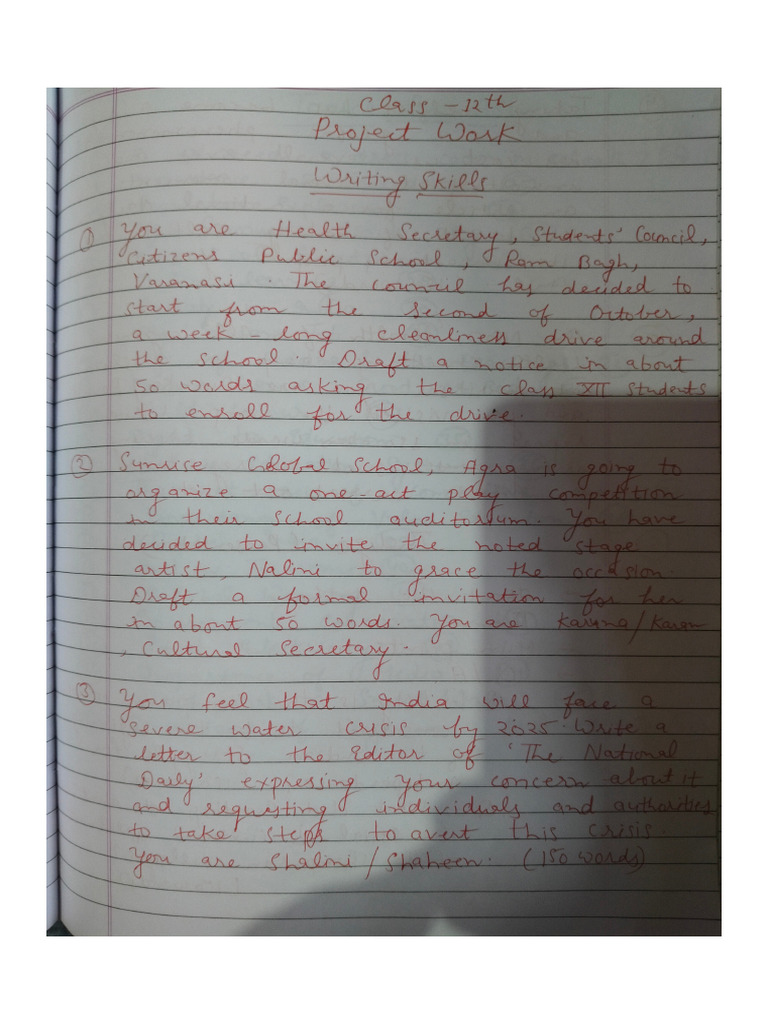 Class - 12th
Project Work
Writing Skills
① You are Health Secretary, Students' Council,
Citizens Public School, Ram Bagh,
Varanasi. The council has decided to
start from the second of October,
a week-long cleanliness drive around
the school. Draft a notice in about
50 words asking the class XII students
to enroll for the drive.
② Sunrise Global School, Agra is going to
organize a one-act play competition
in their school auditorium. You have
decided to invite the noted stage
artist, Nalini to grace the occasion.
Draft a formal invitation for her
in about 50 words. You are Karuna/Karan
, Cultural Secretary.
③ You feel that India will face a
severe water crisis by 2025. Write a
letter to the Editor of 'The National
Daily' expressing your concern about it
and requesting individuals and authorities
to take steps to avert this crisis.
You are Shalini/Shaheen. (150 words)